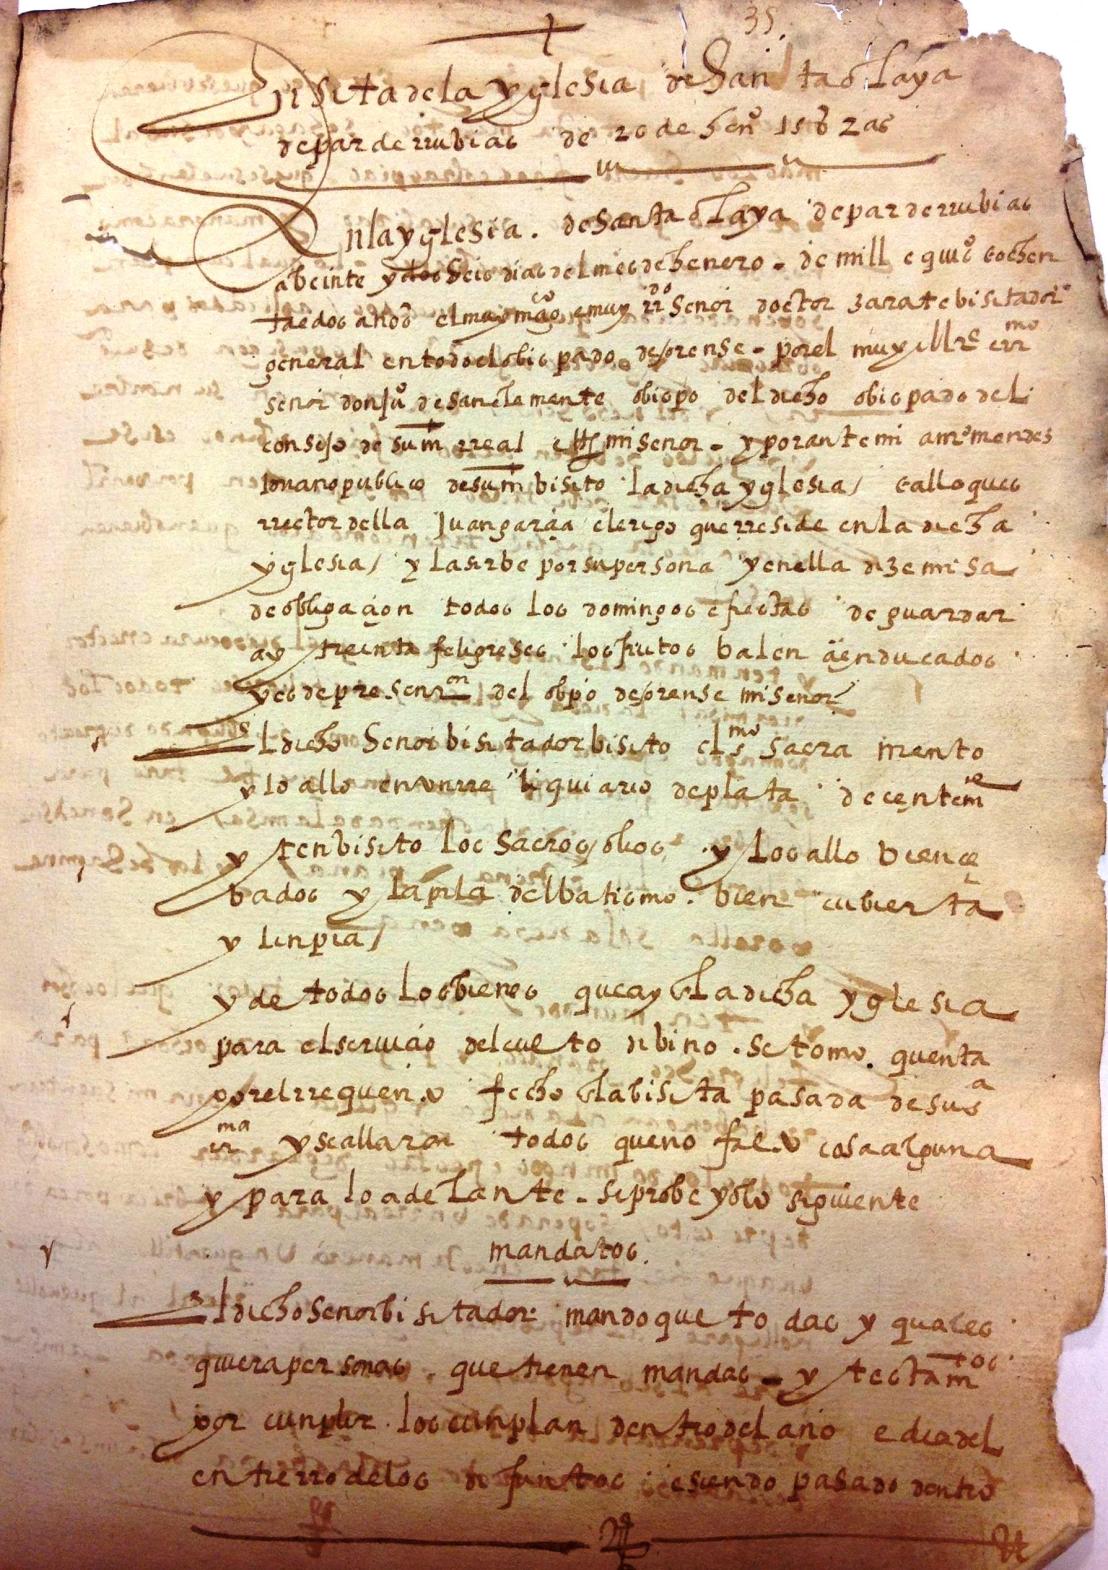 35.
Visita de la yglesia de Santa olaya
de parderrubias de 20 de hen.º 1582 as
En la yglesia. de Santa olaya de parderrubias
a beinte y dos dias del mes de henero. de mill e qui.ºs ochen
ta e dos anos el muy mag.co e muy rr.do Senor doctor zarate bisitador
general en todo el obispado de orense. por el muy yll.re e rr.mo
senor don ju.º de san clemente obispo del dicho obispado del
consejo de su m. rreal mi senor. y por ante mi mendez
publico de su m. bisito la dicha yglesia/ e allo que es
rrector della Juan garcia clerigo que rreside en la dicha
yglesia/ y la sirbe por su persona y en ella dize misa
de obligaçion todos los domingos e fiestas de guardar
ay treinta feligreses los frutos balen çien ducados
y es de presen.on del obpo de orense mi senor
El dicho Senor bisitador bisito el s.mo sacramento
y lo allo en un rreliquiario de plata decentem.te
y ten bisito los sacros olios y los allo bien ce
bados y la pila del batismo. bien cubierta
y linpia/
y de todos los bienes que ay en la dicha yglesia
para el serviçio del culto dibino. se tomo. quenta
por el rrequen.º fecho en la bisita pasada de su s.a
rr.ma y se allaron todos que no falto cosa alguna
y para lo adelante. se probeyo lo siguiente
mandatos.
El dicho Senor bisitador mando que todas y quales
quiera personas que tienen mandas. y testam.tos
por cunplir los cunplan dentro del año e dia del
entierro de los difuntos e siendo pasado dentro